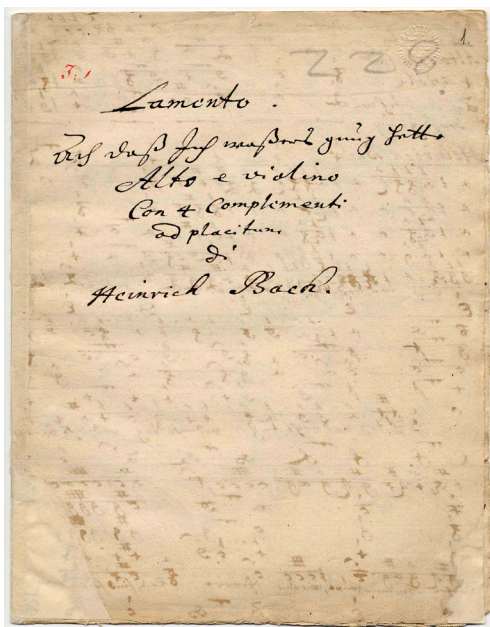 1.
228
J.
Lamento.
Ach daß Ich waßers gnug hette
Alto e violino
Con 4 Complimenti
ad placitum
di
Heinrich Bach.